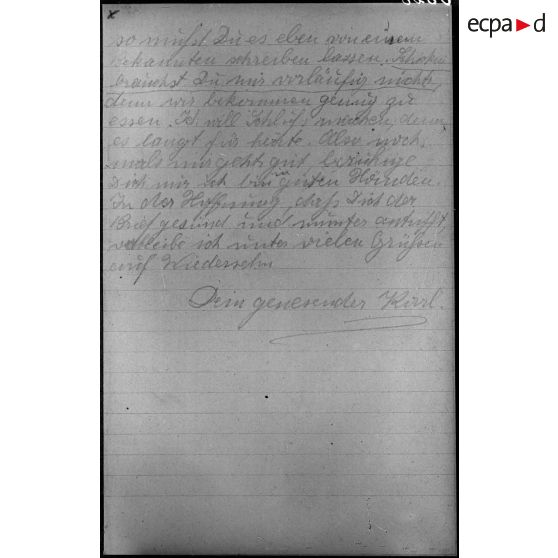 so mußt Du es eben von einem
bekannten schreiben lassen. Schicken
brauchst Du mir vorläufig nichts,
denn wir bekommen genug zu
essen. Ich will Schluß machen, denn
es langt für heute. Also noch
mals mir gehts gut, beruhige
Dich mir ich bin in guten Händen.
In der Hoffnung, daß Dich der
Brief gesund und munter antrifft,
verbleibe ich unter vielen Grüßen
auf Wiedersehn
Dein genesender Karl.
ecpa d